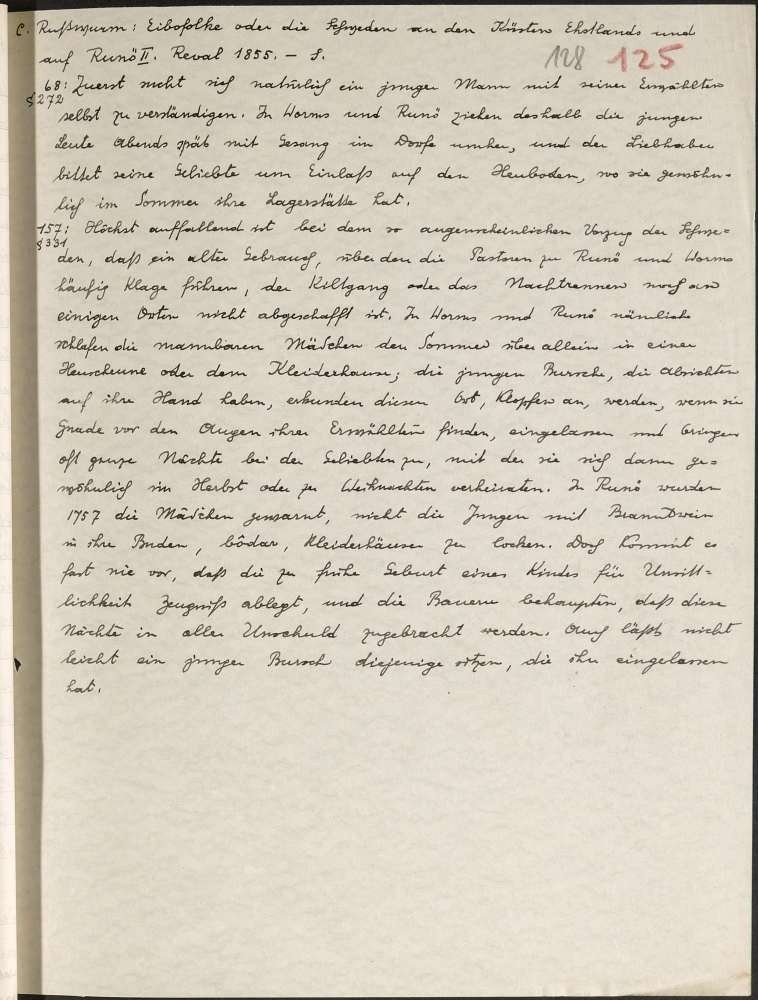 C. Rußwurm: Eibofolke oder die Schweden an den Küsten Ehstlands und
auf Runö II. Reval 1855. – S.
128 125
68: Zuerst sucht sich natürlich ein junger Mann mit seiner Erwählten
§272
selbst zu verständigen. In Worms und Runö ziehen deshalb die jungen
Leute Abends spät mit Gesang im Dorfe umher, und der Liebhaber
bittet seine Geliebte um Einlaß auf den Heuboden, wo sie gewöhn-
lich im Sommer ihre Lagerstätte hat.
157: Höchst auffallend ist bei dem so augenscheinlichen Vorzug der Schwe-
§331
den, daß ein alter Gebrauch, über den die Pastoren zu Runö und Worms
häufig Klage führen, der Kiltgang oder das Nachtrennen noch an
einigen Orten nicht abgeschafft ist. In Worms und Runö nämlich
schlafen die mannbaren Mädchen den Sommer über allein in einer
Heuscheune oder dem Kleiderhause; die jungen Bursche, die Absichten
auf ihre Hand haben, erkunden diesen Ort, klopfen an, werden, wenn sie
Gnade vor den Augen ihrer Erwählten finden, eingelassen und bringen
oft ganze Nächte bei der Geliebten zu, mit der sie sich dann ge-
wöhnlich im Herbst oder zu Weihnachten verheiraten. In Runö wurden
1757 die Mädchen gewarnt, nicht die Jungen mit Branntwein
in ihre Buden, bôdar, Kleiderhäuser zu locken. Doch kommt es
fast nie vor, daß die zu frühe Geburt eines Kindes für Unsitt-
lichkeit Zeugniß ablegt, und die Bauern behaupten, daß diese
Nächte in aller Unschuld zugebracht werden. Auch läßt nicht
leicht ein junger Bursch diejenige sitzen, die ihn eingelassen
hat.